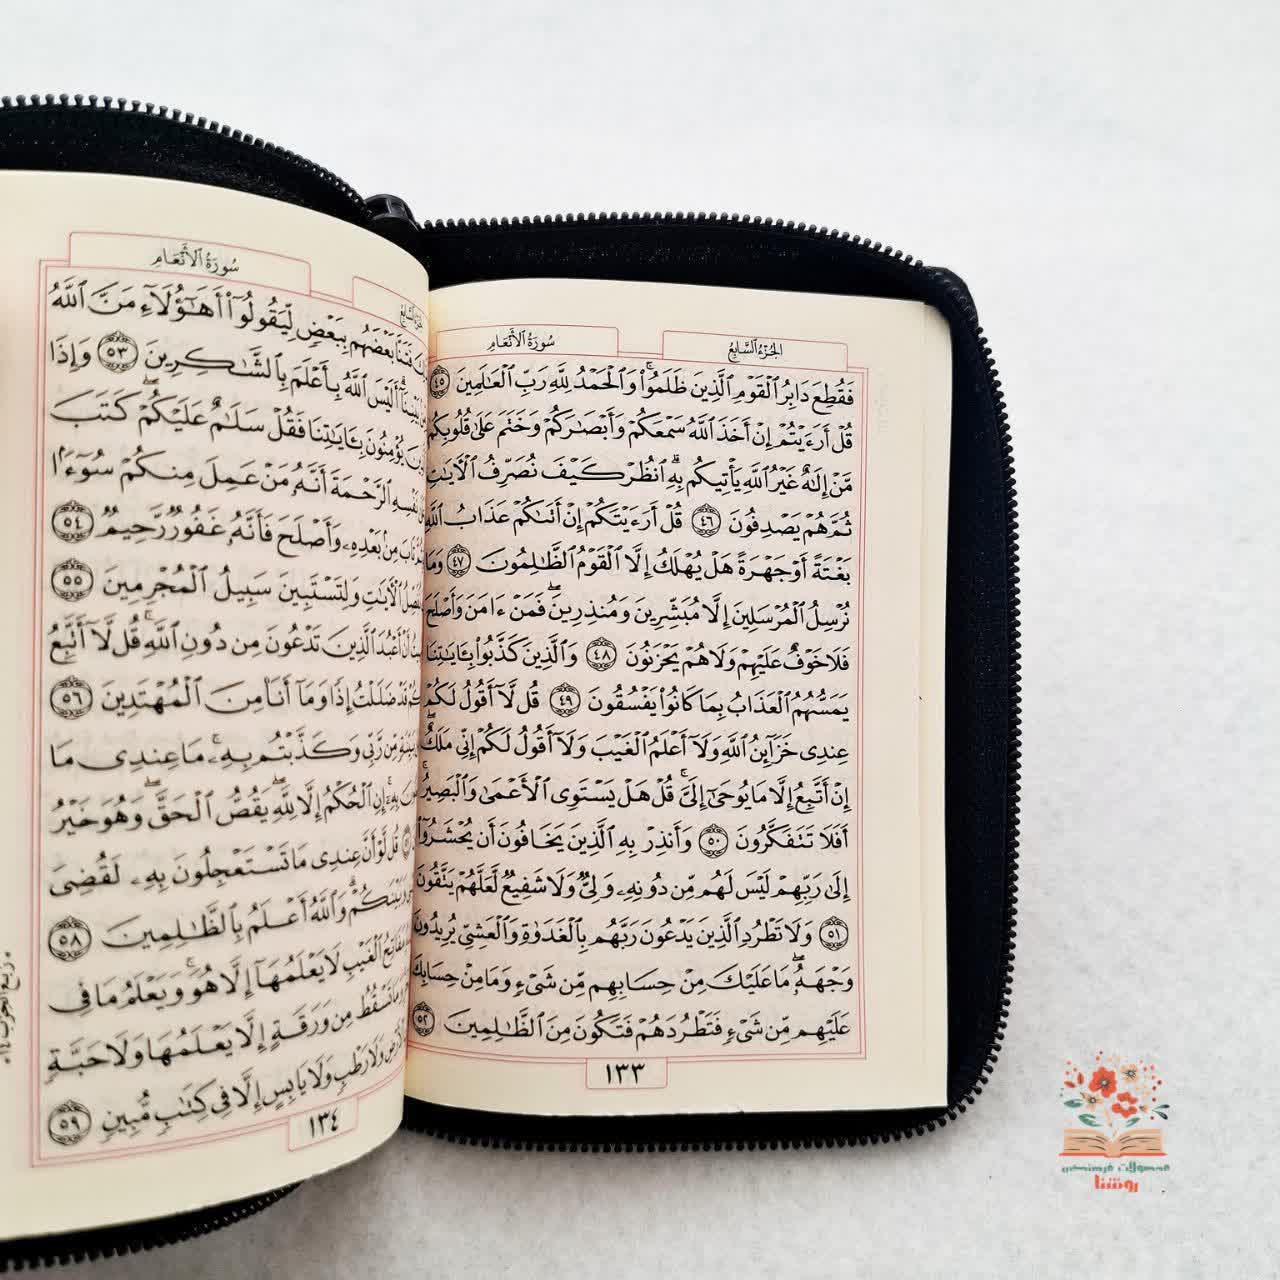 الجُزْءُ السَّابِعُ
سُورَةُ الأَنْعَامِ
فَقُطِعَ دَابِرُ ٱلْقَوْمِ ٱلَّذِينَ ظَلَمُوا۟ ۚ وَٱلْحَمْدُ لِلَّهِ رَبِّ ٱلْعَٰلَمِينَ ٤٥
قُلْ أَرَءَيْتُمْ إِنْ أَخَذَ ٱللَّهُ سَمْعَكُمْ وَأَبْصَٰرَكُمْ وَخَتَمَ عَلَىٰ قُلُوبِكُم
مَّنْ إِلَٰهٌ غَيْرُ ٱللَّهِ يَأْتِيكُم بِهِ ۗ ٱنظُرْ كَيْفَ نُصَرِّفُ ٱلْءَايَٰتِ
ثُمَّ هُمْ يَصْدِفُونَ ٤٦ قُلْ أَرَءَيْتَكُمْ إِنْ أَتَىٰكُمْ عَذَابُ ٱللَّهِ
بَغْتَةً أَوْ جَهْرَةً هَلْ يُهْلَكُ إِلَّا ٱلْقَوْمُ ٱلظَّٰلِمُونَ ٤٧ وَمَا
نُرْسِلُ ٱلْمُرْسَلِينَ إِلَّا مُبَشِّرِينَ وَمُنذِرِينَ ۖ فَمَنْ ءَامَنَ وَأَصْلَحَ
فَلَا خَوْفٌ عَلَيْهِمْ وَلَا هُمْ يَحْزَنُونَ ٤٨ وَٱلَّذِينَ كَذَّبُوا۟ بِـَٔايَٰتِنَا
يَمَسُّهُمُ ٱلْعَذَابُ بِمَا كَانُوا۟ يَفْسُقُونَ ٤٩ قُل لَّآ أَقُولُ لَكُمْ
عِندِى خَزَآئِنُ ٱللَّهِ وَلَآ أَعْلَمُ ٱلْغَيْبَ وَلَآ أَقُولُ لَكُمْ إِنِّى مَلَكٌ ۖ
إِنْ أَتَّبِعُ إِلَّا مَا يُوحَىٰٓ إِلَىَّ ۚ قُلْ هَلْ يَسْتَوِى ٱلْأَعْمَىٰ وَٱلْبَصِيرُ ۚ
أَفَلَا تَتَفَكَّرُونَ ٥٠ وَأَنذِرْ بِهِ ٱلَّذِينَ يَخَافُونَ أَن يُحْشَرُوٓا۟
إِلَىٰ رَبِّهِمْ ۙ لَيْسَ لَهُم مِّن دُونِهِۦ وَلِىٌّ وَلَا شَفِيعٌ لَّعَلَّهُمْ يَتَّقُونَ
٥١ وَلَا تَطْرُدِ ٱلَّذِينَ يَدْعُونَ رَبَّهُم بِٱلْغَدَوٰةِ وَٱلْعَشِىِّ يُرِيدُونَ
وَجْهَهُۥ ۖ مَا عَلَيْكَ مِنْ حِسَابِهِم مِّن شَىْءٍ وَمَا مِنْ حِسَابِكَ
عَلَيْهِم مِّن شَىْءٍ فَتَطْرُدَهُمْ فَتَكُونَ مِنَ ٱلظَّٰلِمِينَ ٥٢
١٣٣
سُورَةُ الأَنْعَامِ
فَتَنَّا بَعْضَهُم بِبَعْضٍ لِّيَقُولُوٓا۟ أَهَٰٓؤُلَآءِ مَنَّ ٱللَّهُ
أَلَيْسَ ٱللَّهُ بِأَعْلَمَ بِٱلشَّٰكِرِينَ ٥٣ وَإِذَا
يُؤْمِنُونَ بِـَٔايَٰتِنَا فَقُلْ سَلَٰمٌ عَلَيْكُمْ ۖ كَتَبَ
نَفْسِهِ ٱلرَّحْمَةَ ۖ أَنَّهُۥ مَنْ عَمِلَ مِنكُمْ سُوٓءًۢا
مِنۢ بَعْدِهِۦ وَأَصْلَحَ فَأَنَّهُۥ غَفُورٌ رَّحِيمٌ ٥٤
ٱلْءَايَٰتِ وَلِتَسْتَبِينَ سَبِيلُ ٱلْمُجْرِمِينَ ٥٥
أَنْ أَعْبُدَ ٱلَّذِينَ تَدْعُونَ مِن دُونِ ٱللَّهِ ۚ قُل لَّآ أَتَّبِعُ
قَدْ ضَلَلْتُ إِذًا وَمَآ أَنَا۠ مِنَ ٱلْمُهْتَدِينَ ٥٦
مِّن رَّبِّى وَكَذَّبْتُم بِهِۦ ۚ مَا عِندِى مَا
بِهِۦٓ ۚ إِنِ ٱلْحُكْمُ إِلَّا لِلَّهِ ۖ يَقُصُّ ٱلْحَقَّ ۖ وَهُوَ خَيْرُ
قُل لَّوْ أَنَّ عِندِى مَا تَسْتَعْجِلُونَ بِهِۦ لَقُضِىَ
وَبَيْنَكُمْ ۗ وَٱللَّهُ أَعْلَمُ بِٱلظَّٰلِمِينَ ٥٨
مَفَاتِحُ ٱلْغَيْبِ لَا يَعْلَمُهَآ إِلَّا هُوَ ۚ وَيَعْلَمُ مَا فِى
وَمَا تَسْقُطُ مِن وَرَقَةٍ إِلَّا يَعْلَمُهَا وَلَا حَبَّةٍ
وَلَا رَطْبٍ وَلَا يَابِسٍ إِلَّا فِى كِتَٰبٍ مُّبِينٍ ٥٩
١٣٤
محصولات فرهنگی
روشنا